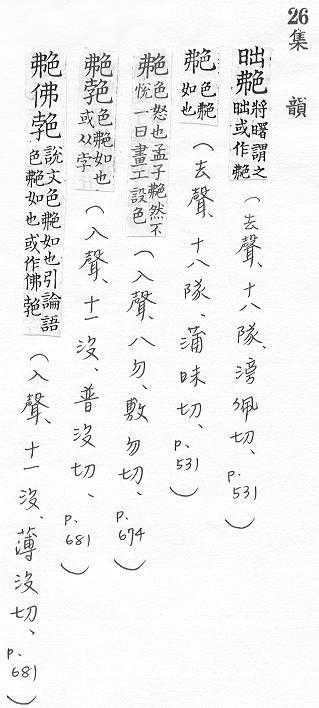 26 集韻
昢艴 將曙謂之昢或作艴（去聲、十八隊、滂佩切、p.531）
艴 色艴如也（去聲、十八隊、蒲昧切、p.531）
艴 色怒也孟子艴然不悅一曰畫工設色（入聲、八勿、敷勿切、p.674）
艴 色艴如也或从孛（入聲、十一沒、普沒切、p.681）
艴佛 說文色艴如也引論語色艴如也或作佛（入聲、十一沒、薄沒切、p.681）